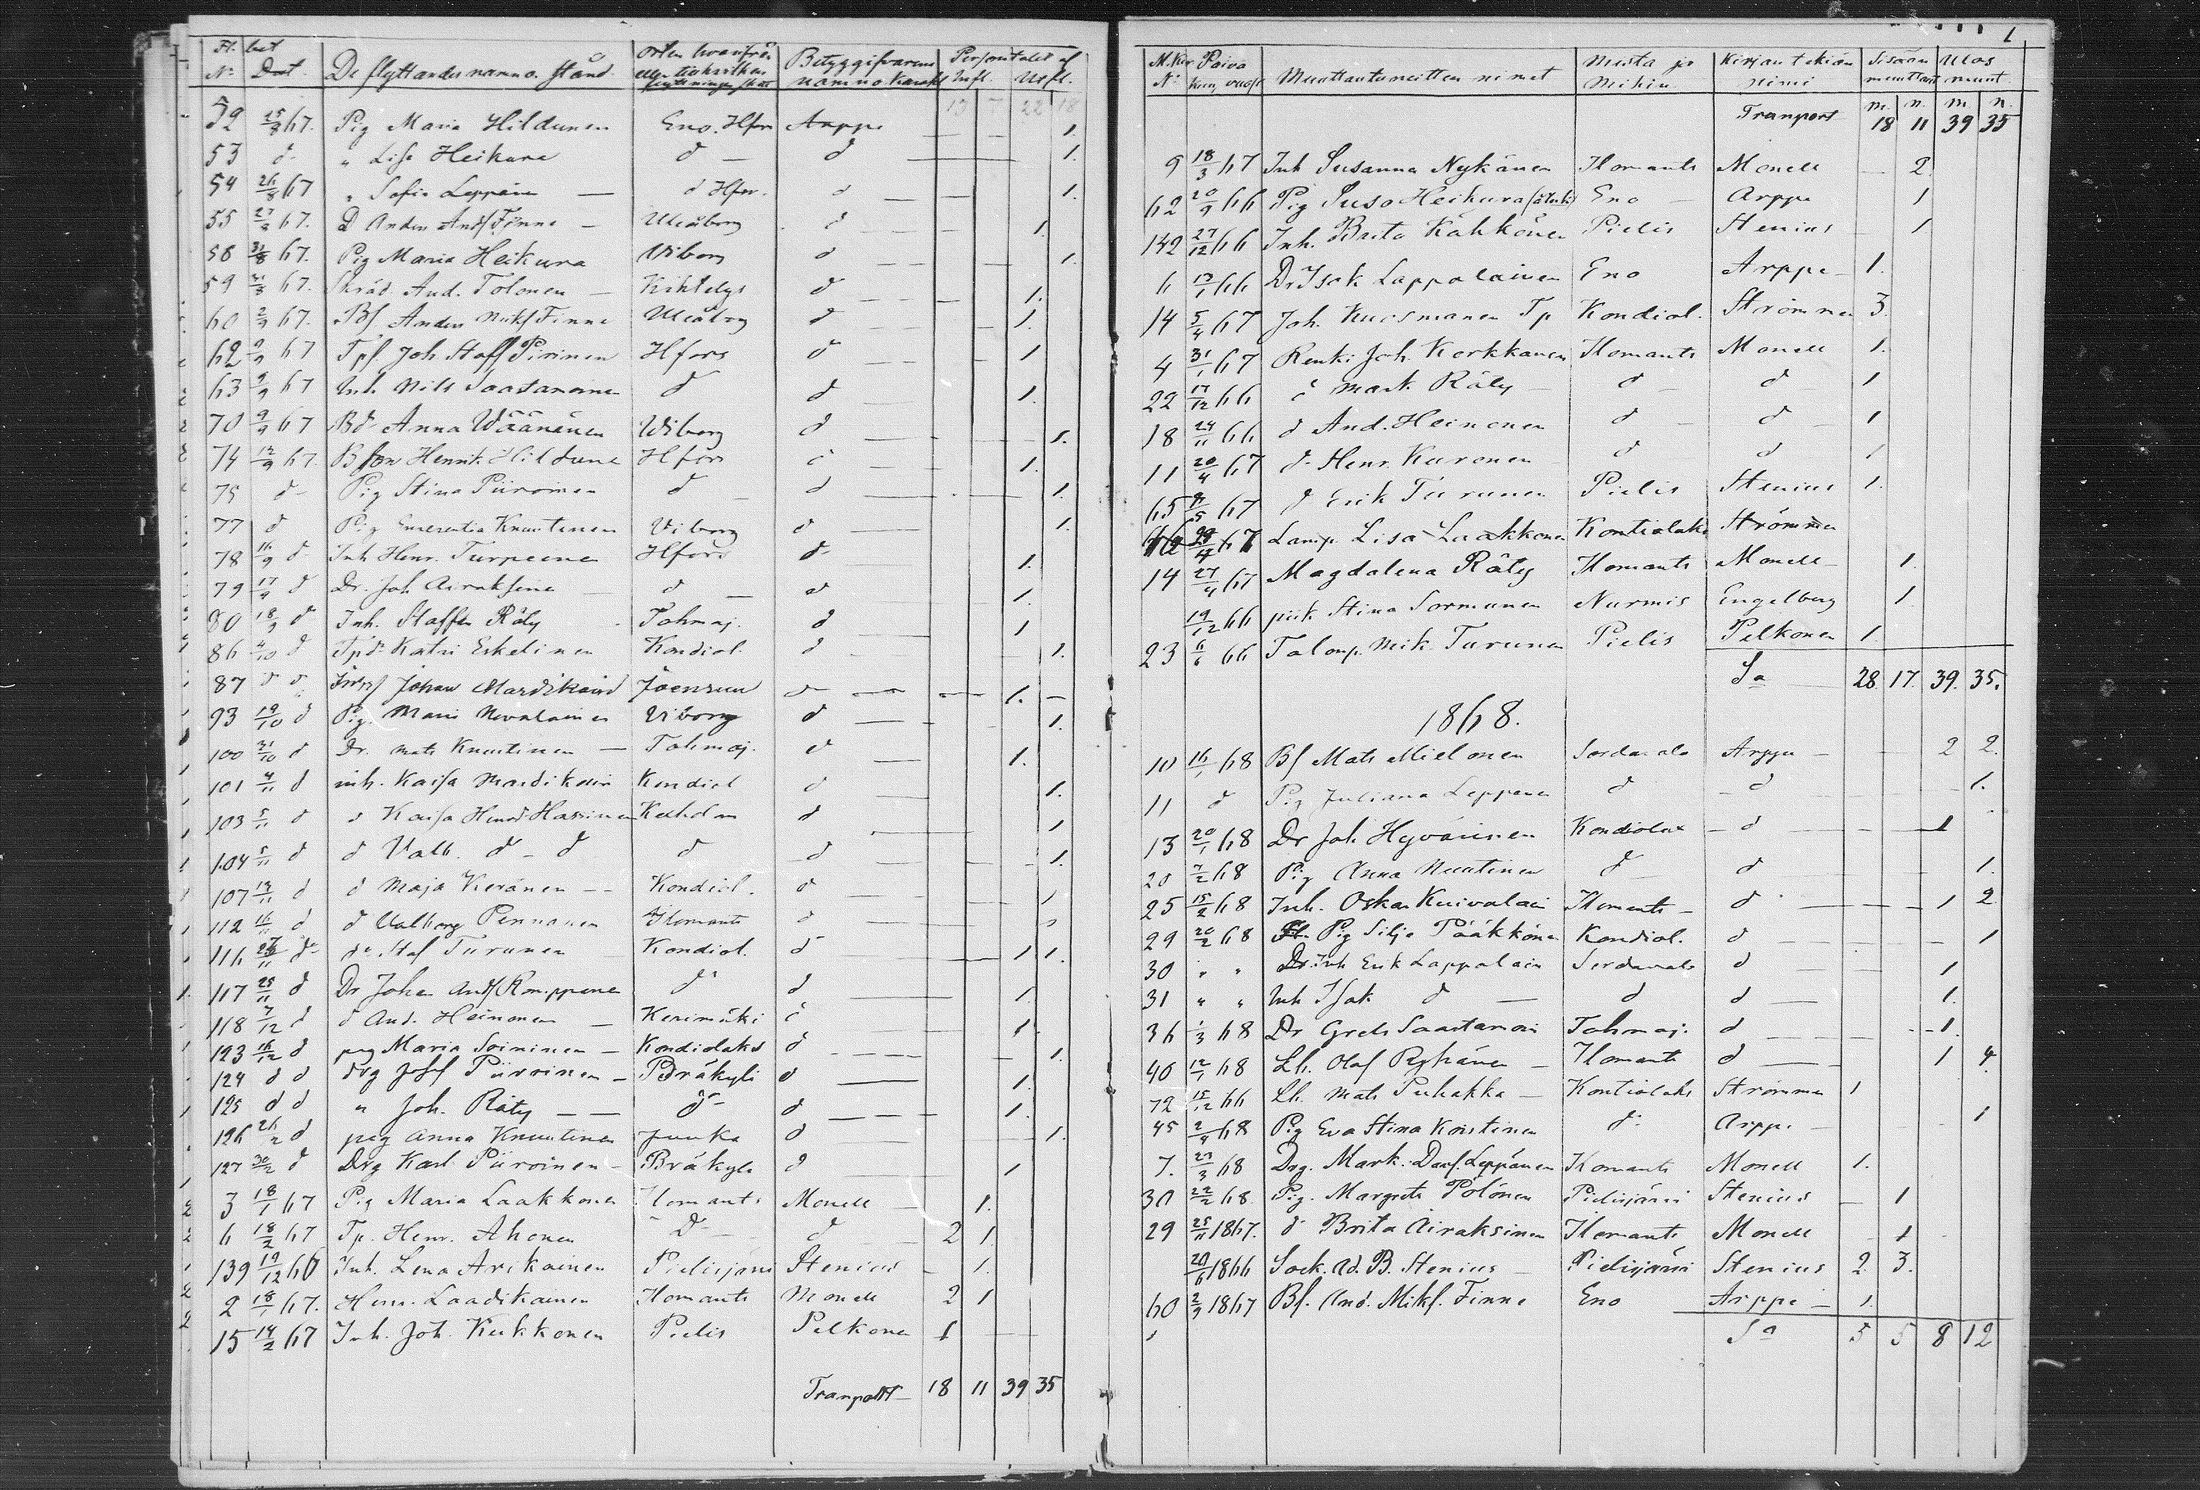 Fl. bet N: Dat. De flyttandes namn o. stånd Orten hvarifrån eller Betygsgifvarens namn o. karakt. Personantalet af Infl. Utfl.
13 7 22 18
52 25/8 67. Pig Maria Hildunen Eno. Hfors Arppe 1.
53 d " Lisa Heikura d d 1.
54 26/8 67 " Sofia Leppäne d Hfor. d 1.
55 27/8 67. D Anders And/Finne Uleåborg d 1.
58 31/8 67. Pig Maria Heikura Wiborg d 1.
59 31/8 67. Skräd. And. Tolonen d 1.
60 2/9 67. Bf Anders Mikf Finne Uleåborg d 1.
62 9/9 67 Tpf Joh Staff Piirinen Hfors d 1
63 9/9 67 Inh. Nils Saastamoine d d 1.
70 9/9 67 Bd. Anna Wäänänen Wiborg d 1.
74 12/9 67. B son Henrik Hildune Hfors d 1.
75 d Pig Stina Piiroinen d d 1.
77 d Pig Knuutinen Viborg d 1.
78 16/9 d Inh Henr. Turpeene Hfors d 1.
79 17/9 d Dr. Joh Airaksine d d 1.
80 18/9 d Inh. Staffan Räty Tohmaj. d 1
86 4/10 d Tpd. Katri Eskelinen Kondiol. d 1.
87 d d Johan Mardikaine Joensuu d 1.
93 19/10 d Pig. Maria Nevalainen Viborg d 1.
100 31/10 d Dr. Mats Knuutinen Tohmaj. d 1.
101 4/11 d inh. Kaisa Mardikain Kondiol d 1.
103 5/11 d d Kaisa Hassinen Kexholm d 1
104 5/11 d d Valb. d d d d 1.
107 14/11 d d Maja Keränen Kondiol. d 1
112 16/11 d d Valborg Pennanen Ilomants d
116 d d Staf Turunen Kondiol. d 1 1.
117 25/11 d Dr Johan And/Romppane d d 1.
118 7/12 d d And. Heinonen Kerimäki d 1.
123 16/12 d pig Maria Soininen Kondiolaks d 1.
124 d d drg Josef Piiroinen Bräkylä d 1.
125 d d " Joh. Räty d d 1.
126 d pig Anna Knuutinen Juuka d 1.
127 d Drg Karl Piiroinen Bräkyl d 1
3 18/1 67 Pig Maria Laakkonen Ilomants Monell 1.
6 18/2 67 Tp. Henr. Ahonen D d 2 1.
139 19/12 66 Inh. Lena Arikainen Pielisjärvi Stenius 1.
2 18/1 67. Henr. Laadikainen Ilomants Monell 2 1
15 14/2 67 Inh. Joh. Kukkonen Pielis Pelkonen 1
Transport 18 11 39 35
1
N: Päivä Kuu, vuosi Muuttavaisten nimet Mistä ja Mihin Kirjan tekiän nimi Sisään muuttan. Ulos muut
Transport m. 18 n. 11 m. 39 n. 35
9 18/3 67 Inh Susanna Nykänen Ilomants Monell 2
62 20/9 66 Pig Susa Heikura Eno Arppe 1
142 27/12 66 Inh. Brita Kähkönen Pielis Stenius 1
66 Dr. Isak Lappalainen Eno Arppe 1.
14 5/4 67 Joh. Kuosmanen Tp Kondiol. Strömmer 3
4 31/1 67 Renki Joh. Korkkanen Ilomants Monell 1.
22 17/12 66 d Mark. Räty d d 1
18 24/11 66 d And. Heinonen d d 1
11 20/4 67 d Henr. Kuronen d d 1
65 67 d Erik Turunen Pielis Stenius 1.
67 Lamp. Lisa Laakkonen Kontiolaks Strömmer
14 27/4 67 Magdalena Räty Ilomants Monell 1.
19/12 66 piik Stina Sormunen Nurmis Engelberg 1
23 6/6 66 Talonp. Mik. Turunen Pielis Pelkonen 1.
Sa 28. 17. 39. 35.
1868.
10 16/1 68 Bf Mats Mielonen Sordavala Arppe 2 2.
11 d Pig Juliana Leppänen d d 1.
13 20/1 68 Dr Joh. Hyvärinen Kondiolax d 1
20 68 Pig Anna Nuutinen d d 1.
25 15/2 68 Inh. Oskar Kuivalain Ilomants d 1 2
29 20/2 68 Pig Silja Pääkköne Kondiol. d 1
30 " " Inh Erik Lappalain Sordavala d 1
31 " " Inh Isak d d d 1.
36 1/3 68 Dr Grels Saastamoi Tohmaj. d 1.
40 12/1 68 Lh. Olof Ryhänen Ilomants d 1 4.
72 15/12 66 Lh. Mats Puhakka Kontiolaks Strömmer 1
45 2/4 68 Pig Eva Stina Kontinen d Arppe 1
7. 23/3 68 Drg. Mark. Leppänen Ilomants Monell 1.
30 22/2 68. Pig. Margreta Polönen Pielisjärvi Stenius 1
29 25/11 1867. d Brita Airaksinen Ilomants Monell 1
20/6 1866 Sock. Ad. B. Stenius Pielisjärvi Stenius 2. 3.
60 2/9 1867 Bf. And. Mikf. Finne Eno Arppe 1.
Sa 5 5 8 12